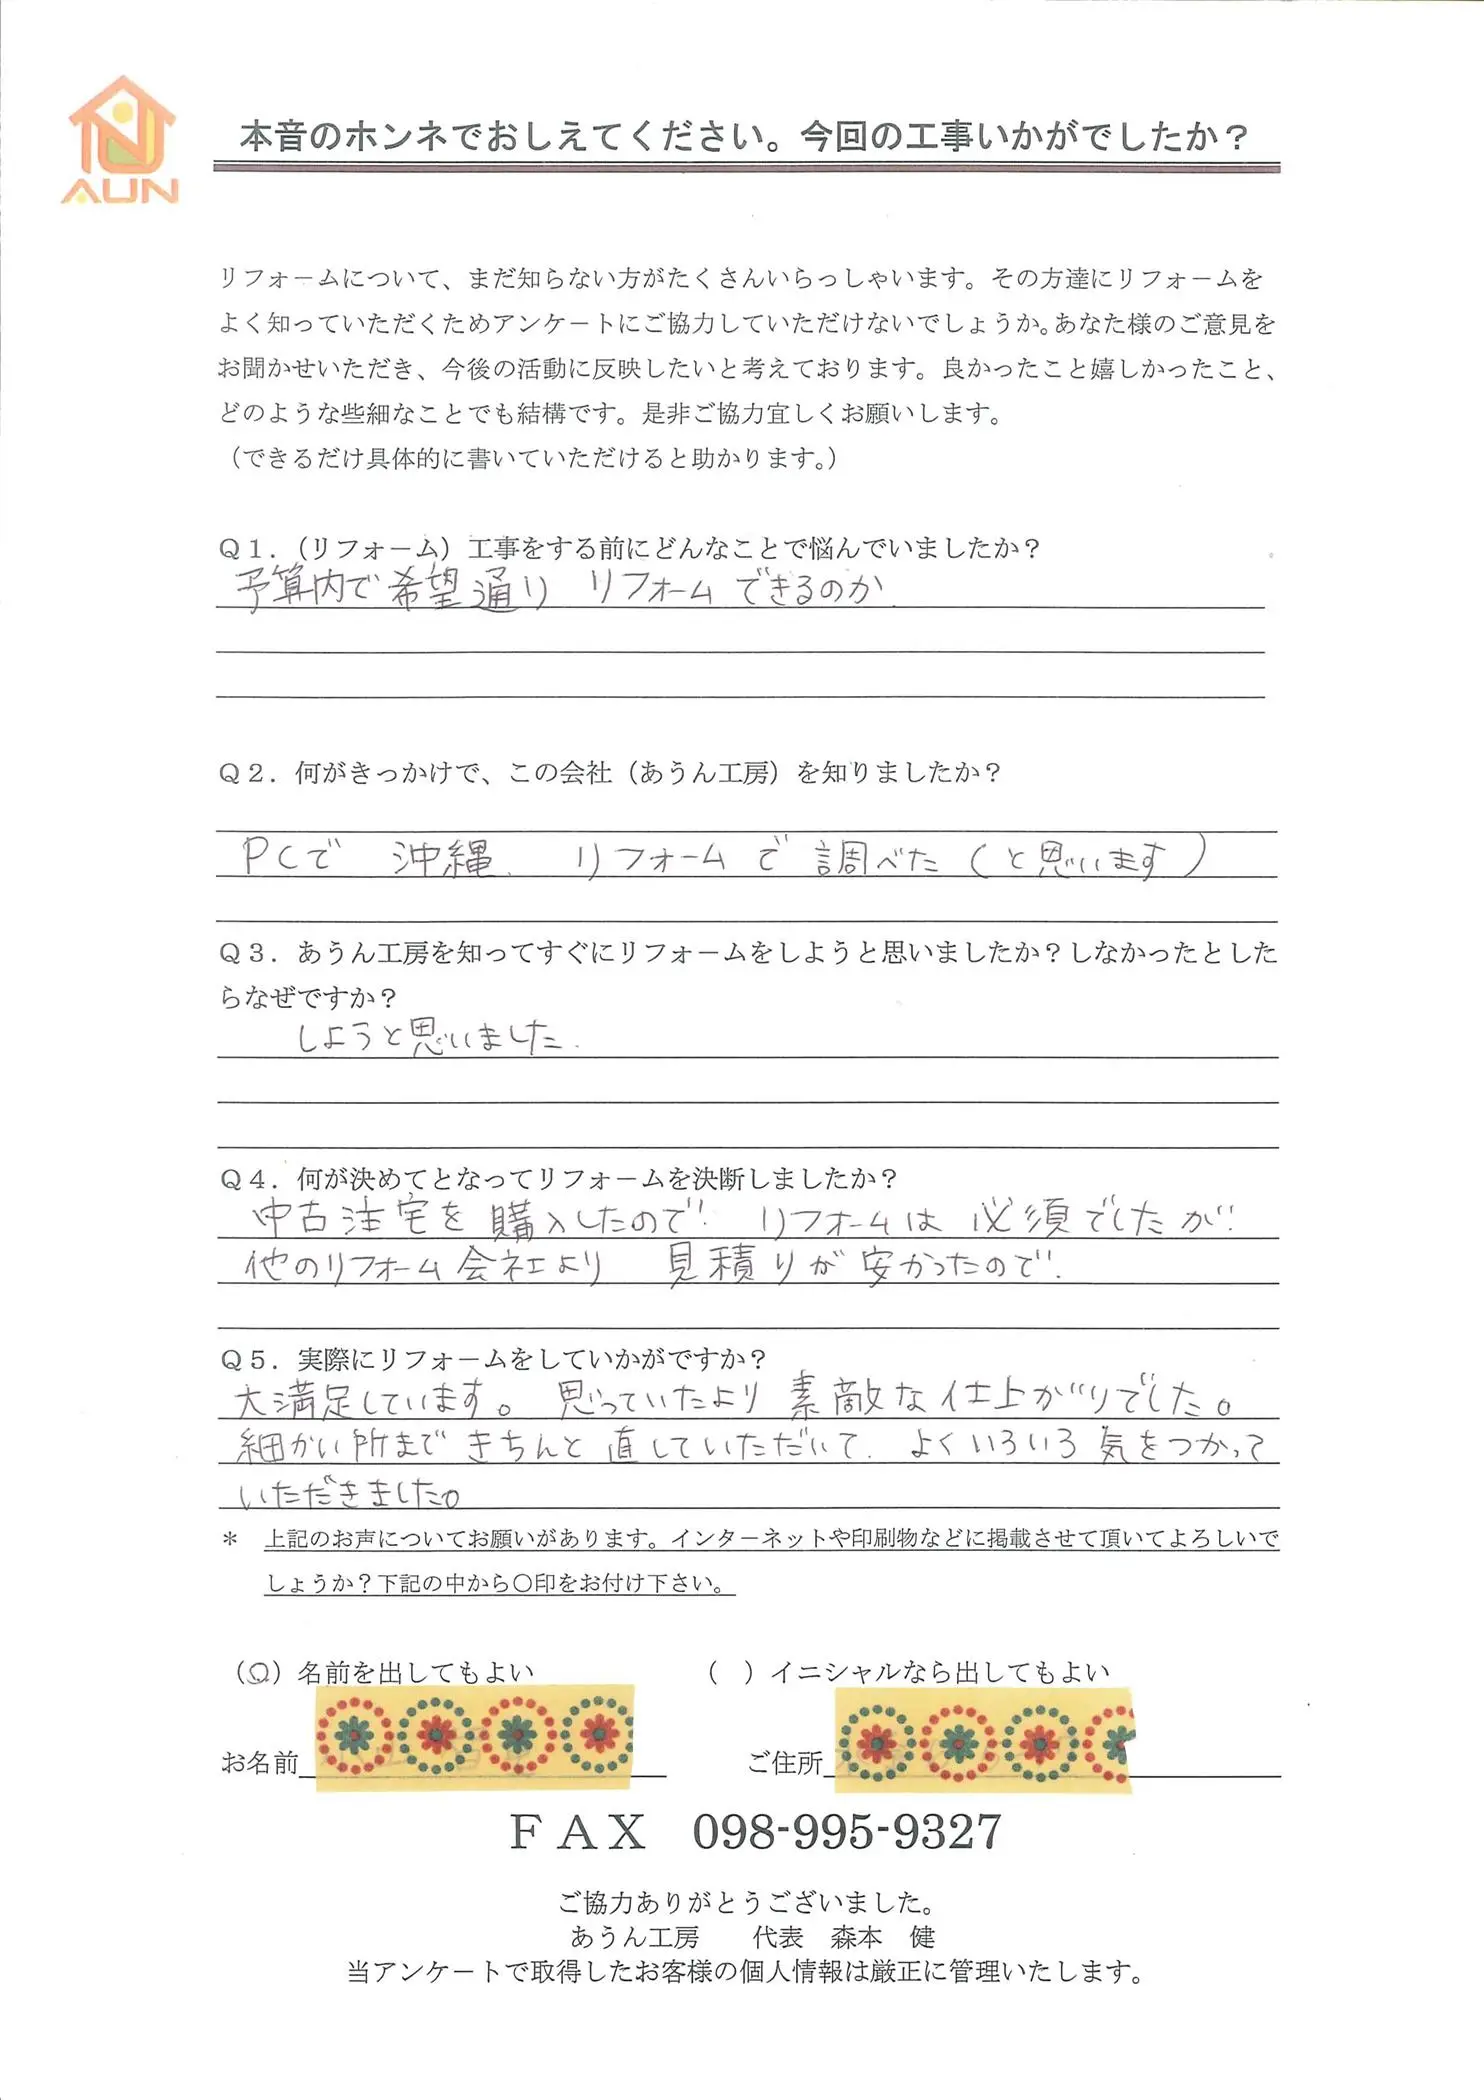 AUN
本音のホンネでおしえてください。今回の工事いかがでしたか？
リフォームについて、まだ知らない方がたくさんいらっしゃいます。その方達にリフォームを
よく知っていただくためアンケートにご協力していただけないでしょうか。あなた様のご意見を
お聞かせいただき、今後の活動に反映したいと考えております。良かったこと嬉しかったこと、
どのような些細なことでも結構です。是非ご協力宜しくお願いします。
（できるだけ具体的に書いていただけると助かります。）
Ｑ１．（リフォーム）工事をする前にどんなことで悩んでいましたか？
予算内で希望通り リフォームできるのか
Ｑ２．何がきっかけで、この会社（あうん工房）を知りましたか？
PCで 沖縄、 リフォームで調べた（と思います）
Ｑ３．あうん工房を知ってすぐにリフォームをしようと思いましたか？しなかったとした
らなぜですか？
しようと思いました.
Ｑ４．何が決めてとなってリフォームを決断しましたか？
中古注宅を購入したので リフォームは必須でしたが
他のリフォーム会社より 見積りが安かったので.
Ｑ５．実際にリフォームをしていかがですか？
大満足しています。思っていたより素敵な仕上がりでした。
細かい所まできちんと直していただいて. よくいろいろ気をつかって
いただきました。
＊ 上記のお声についてお願いがあります。インターネットや印刷物などに掲載させて頂いてよろしいで
しょうか？下記の中から〇印をお付け下さい。
（○）名前を出してもよい （ ）イニシャルなら出してもよい
お名前 ご住所
ＦＡＸ 098-995-9327
ご協力ありがとうございました。
あうん工房 代表 森本 健
当アンケートで取得したお客様の個人情報は厳正に管理いたします。